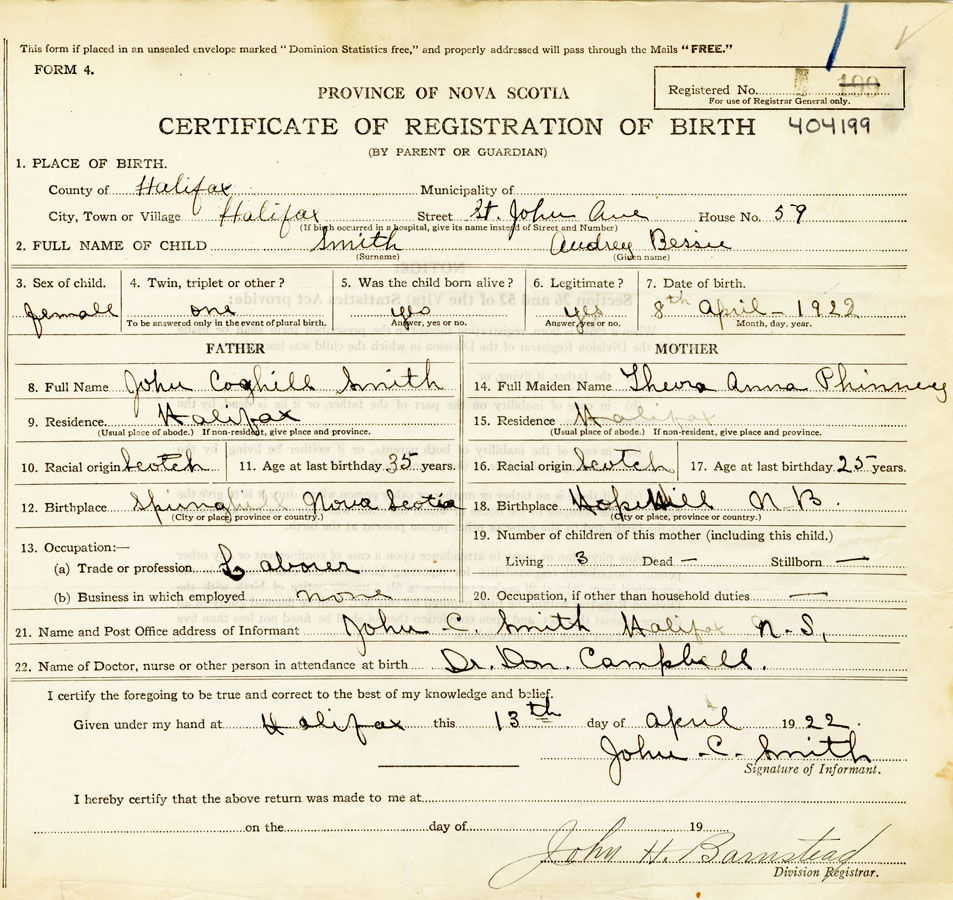 This form if placed in an unsealed envelope marked "Dominion Statistics free," and properly addressed will pass through the Mails "FREE."
FORM 4.
Registered No. 199
For use of Registrar General only.
PROVINCE OF NOVA SCOTIA
CERTIFICATE OF REGISTRATION OF BIRTH 404199
(BY PARENT OR GUARDIAN)
1. PLACE OF BIRTH.
County of Halifax Municipality of
City, Town or Village Halifax Street St. John Ave House No. 59
(If birth occurred in a hospital, give its name instead of Street and Number)
2. FULL NAME OF CHILD Smith Audrey Bessie
(Surname) (Given name)
3. Sex of child. 4. Twin, triplet or other? 5. Was the child born alive? 6. Legitimate? 7. Date of birth.
female one yes yes 8th April - 1922
To be answered only in the event of plural birth. Answer, yes or no. Answer, yes or no. Month, day, year.
FATHER MOTHER
8. Full Name John Coghill Smith 14. Full Maiden Name Thevra Anna Phinney
9. Residence Halifax 15. Residence Halifax
(Usual place of abode.) If non-resident, give place and province. (Usual place of abode.) If non-resident, give place and province.
10. Racial origin Scotch 11. Age at last birthday 35 years. 16. Racial origin Scotch 17. Age at last birthday 25 years.
12. Birthplace Springhill Nova Scotia 18. Birthplace Hopewill N B.
(City or place, province or country.) (City or place, province or country.)
13. Occupation:— 19. Number of children of this mother (including this child.)
(a) Trade or profession Laborer Living 3 Dead — Stillborn —
(b) Business in which employed none 20. Occupation, if other than household duties —
21. Name and Post Office address of Informant John C. Smith Halifax N.S,
22. Name of Doctor, nurse or other person in attendance at birth Dr. Don. Campbell.
I certify the foregoing to be true and correct to the best of my knowledge and belief.
Given under my hand at Halifax this 13th day of April 1922.
John C. Smith
Signature of Informant.
I hereby certify that the above return was made to me at
on the day of 19
John H. Barnstead
Division Registrar.